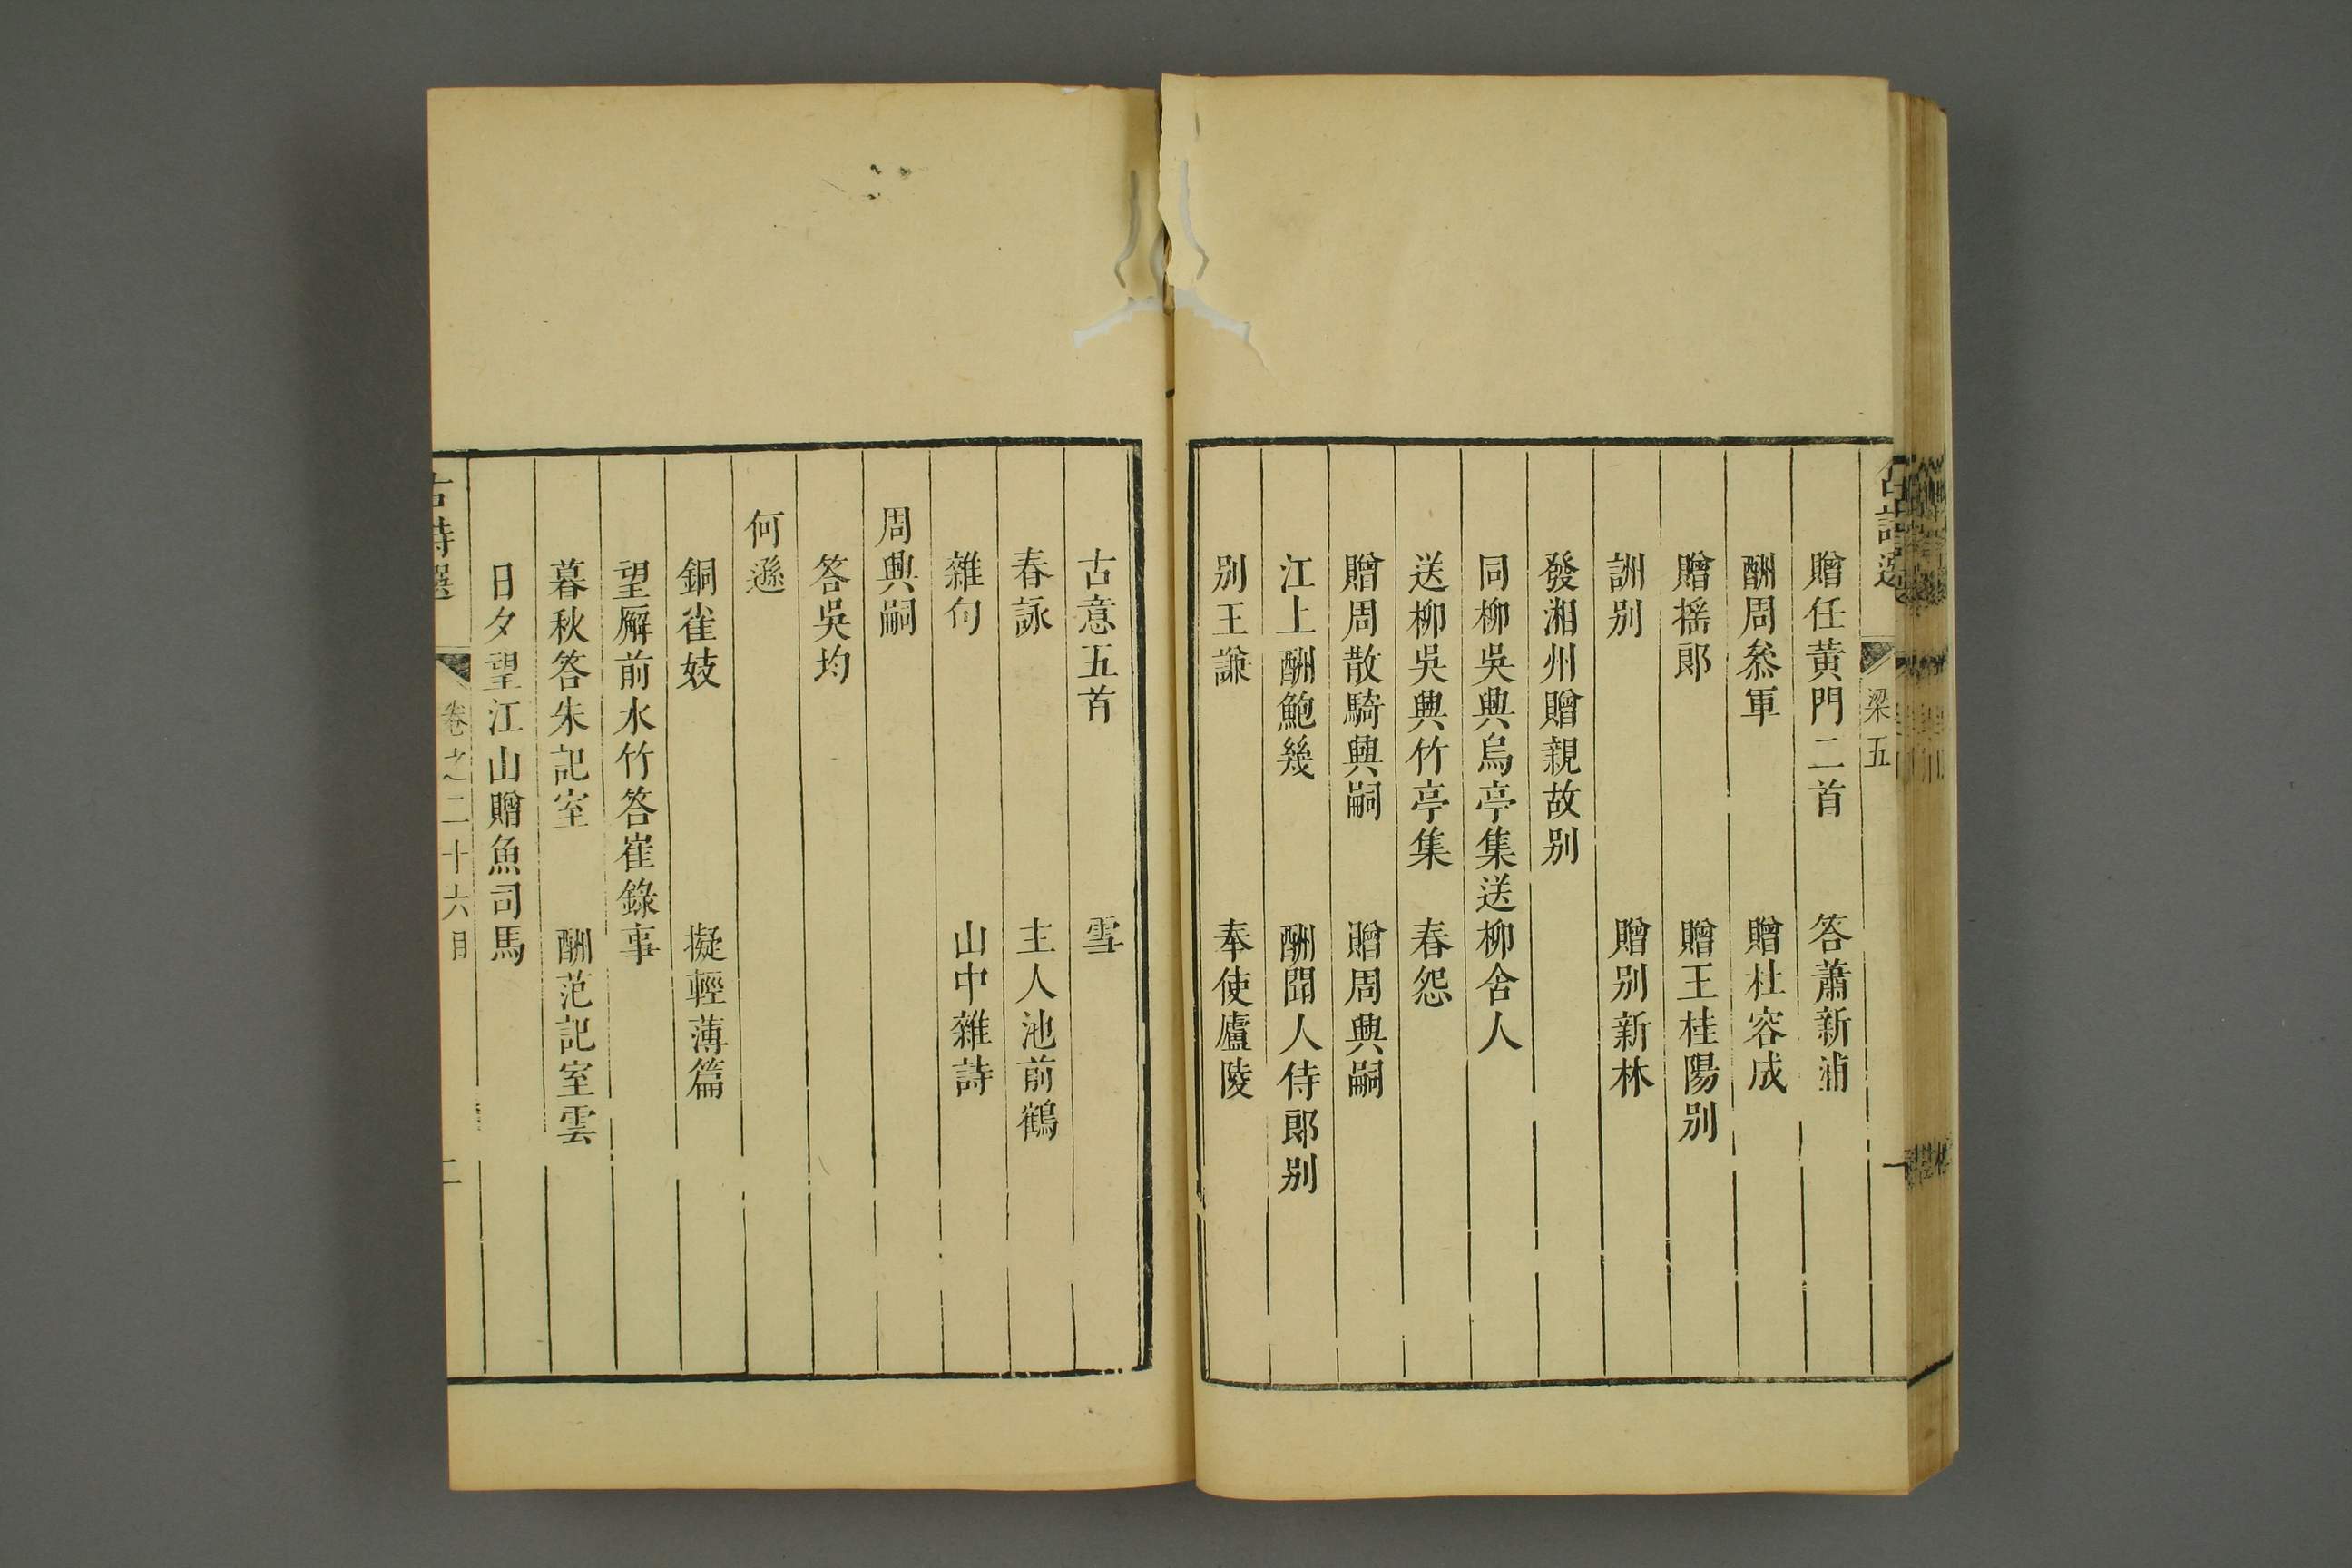 古詩選
梁五
一
贈任黃門二首 答蕭新浦
酬周叅軍 贈杜容成
贈搖郎 贈王桂陽别
詶别 贈别新林
發湘州贈親故别
同柳吳興烏亭集送柳舍人
送柳吳興竹亭集 春怨
贈周散騎興嗣 贈周興嗣
江上酬鮑幾 酬聞人侍郎别
别王謙 奉使廬陵
古意五首 雪
春詠 主人池前鶴
雜句 山中雜詩
周興嗣
答吳均
何遜
銅雀妓 擬輕薄篇
望廨前水竹答崔錄事
暮秋答朱記室 酬范記室雲
日夕望江山贈魚司馬
古詩選
卷之二十六目
二